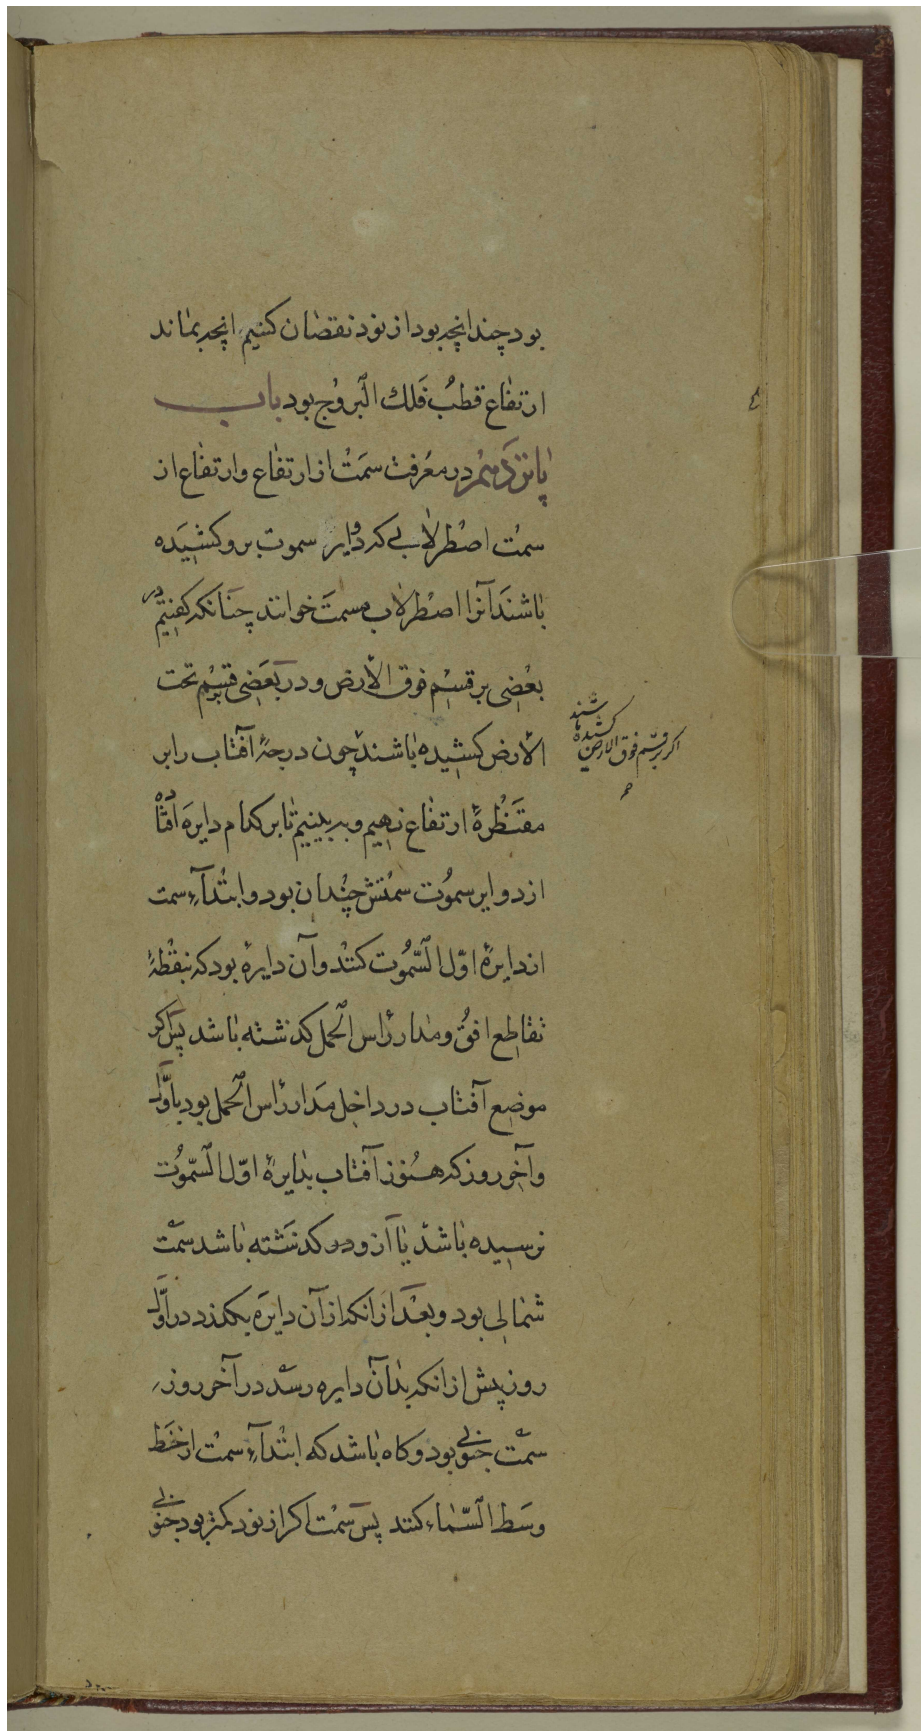 بود چندانچه بود از نود نقصان کنیم انچه بماند
ارتفاع قطب فلك البروج بود باب
پانزدهم در معرفت سمت از ارتفاع و ارتفاع از
سمت اصطرلابی که دوایر سموت برو کشیده
باشند آنرا اصطرلاب مسمت خوانند چنانکه کفتیم در
بعضی بر قسم فوق الارض و در بعضی بر قسم تحت
الارض کشیده باشند چون درجهٔ آفتاب را بر
اکر بر قسم فوق الارض کشیده باشند
مقنظرهٔ ارتفاع نهیم و به بینیم تا بر کدام دایره افتا
از دوایر سموت سمتش چندان بود و ابتداء سمت
از دایرهٔ اوّل السّموت کنند و آن دایرهٔ بود که بنقطهٔ
تقاطع افق و مدار رأس الحمل کذشته باشد پس اکر
موضع آفتاب در داخل مدار رأس الحمل بود باوّل
و آخر روز که هنوز آفتاب بدایرهٔ اوّل السّموت
نرسیده باشد یا از و در کذشته باشد سمت
شمالی بود و بعد از انکه از آن دایره بکذرد در اوّل
روز پیش از انکه بدان دایره رسد در آخر روز
سمت جنوبی بود و کاه باشد که ابتداء سمت از خط
وسط السّماء کنند پس سمت اکر از نود کمتر بود جنوبی